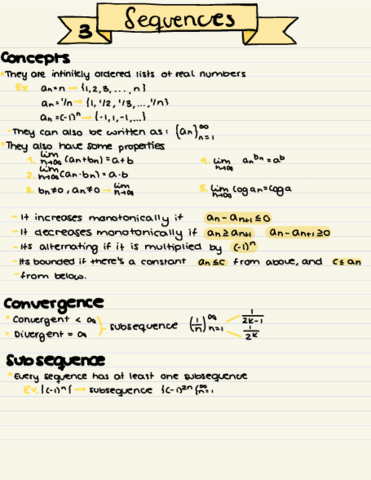 3 Sequences
Concepts
• They are infinitely ordered lists of real numbers
Ex. an = n → {1, 2, 3, ..., n}
an = 1/n → {1, 1/2, 1/3, ..., 1/n}
an = (-1)ⁿ → {-1, 1, -1, ...}
- They can also be written as: (an)∞n=1
• They also have some properties
1. lim n→∞ (an + bn) = a + b
4. lim n→∞ an^bn = a^b
2. lim n→∞ (an · bn) = a · b
3. bn ≠ 0, an ≠ 0 → lim n→∞
5. lim n→∞ log an = log a
- It increases monotonically if an - an+1 ≤ 0
- It decreases monotonically if an ≥ an+1 an - an+1 ≥ 0
- Its alternating if it is multiplied by (-1)ⁿ
- Its bounded if there's a constant an ≤ c from above, and c ≤ an
- from below.
Convergence
• Convergent < ∞
• Divergent = ∞
subsequence (1/n)∞n=1
1/2k-1
1/2k
Subsequence
• Every sequence has at least one subsequence
Ex. {(-1)ⁿ} → subsequence {(-1)²ⁿ}∞n=1